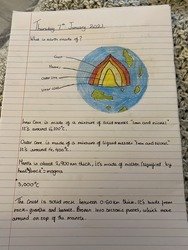 Thursday 7th January 2021
What is earth made of?
Crust
Mantle
Outer core
Inner core
Inner Core is made of a mixture of solid metals "iron and nickel"
It's around
Outer Core is made of a mixture of liquid metals "iron and nickel"
It's around
Mantle is about 2,900 km thick, it's made of molten
3,000°C
The Crust is solid rock between 0-60 km thick. It's made from
rock granite and basalt. Broken into tectonic plates, which move
around on top of the mantle.